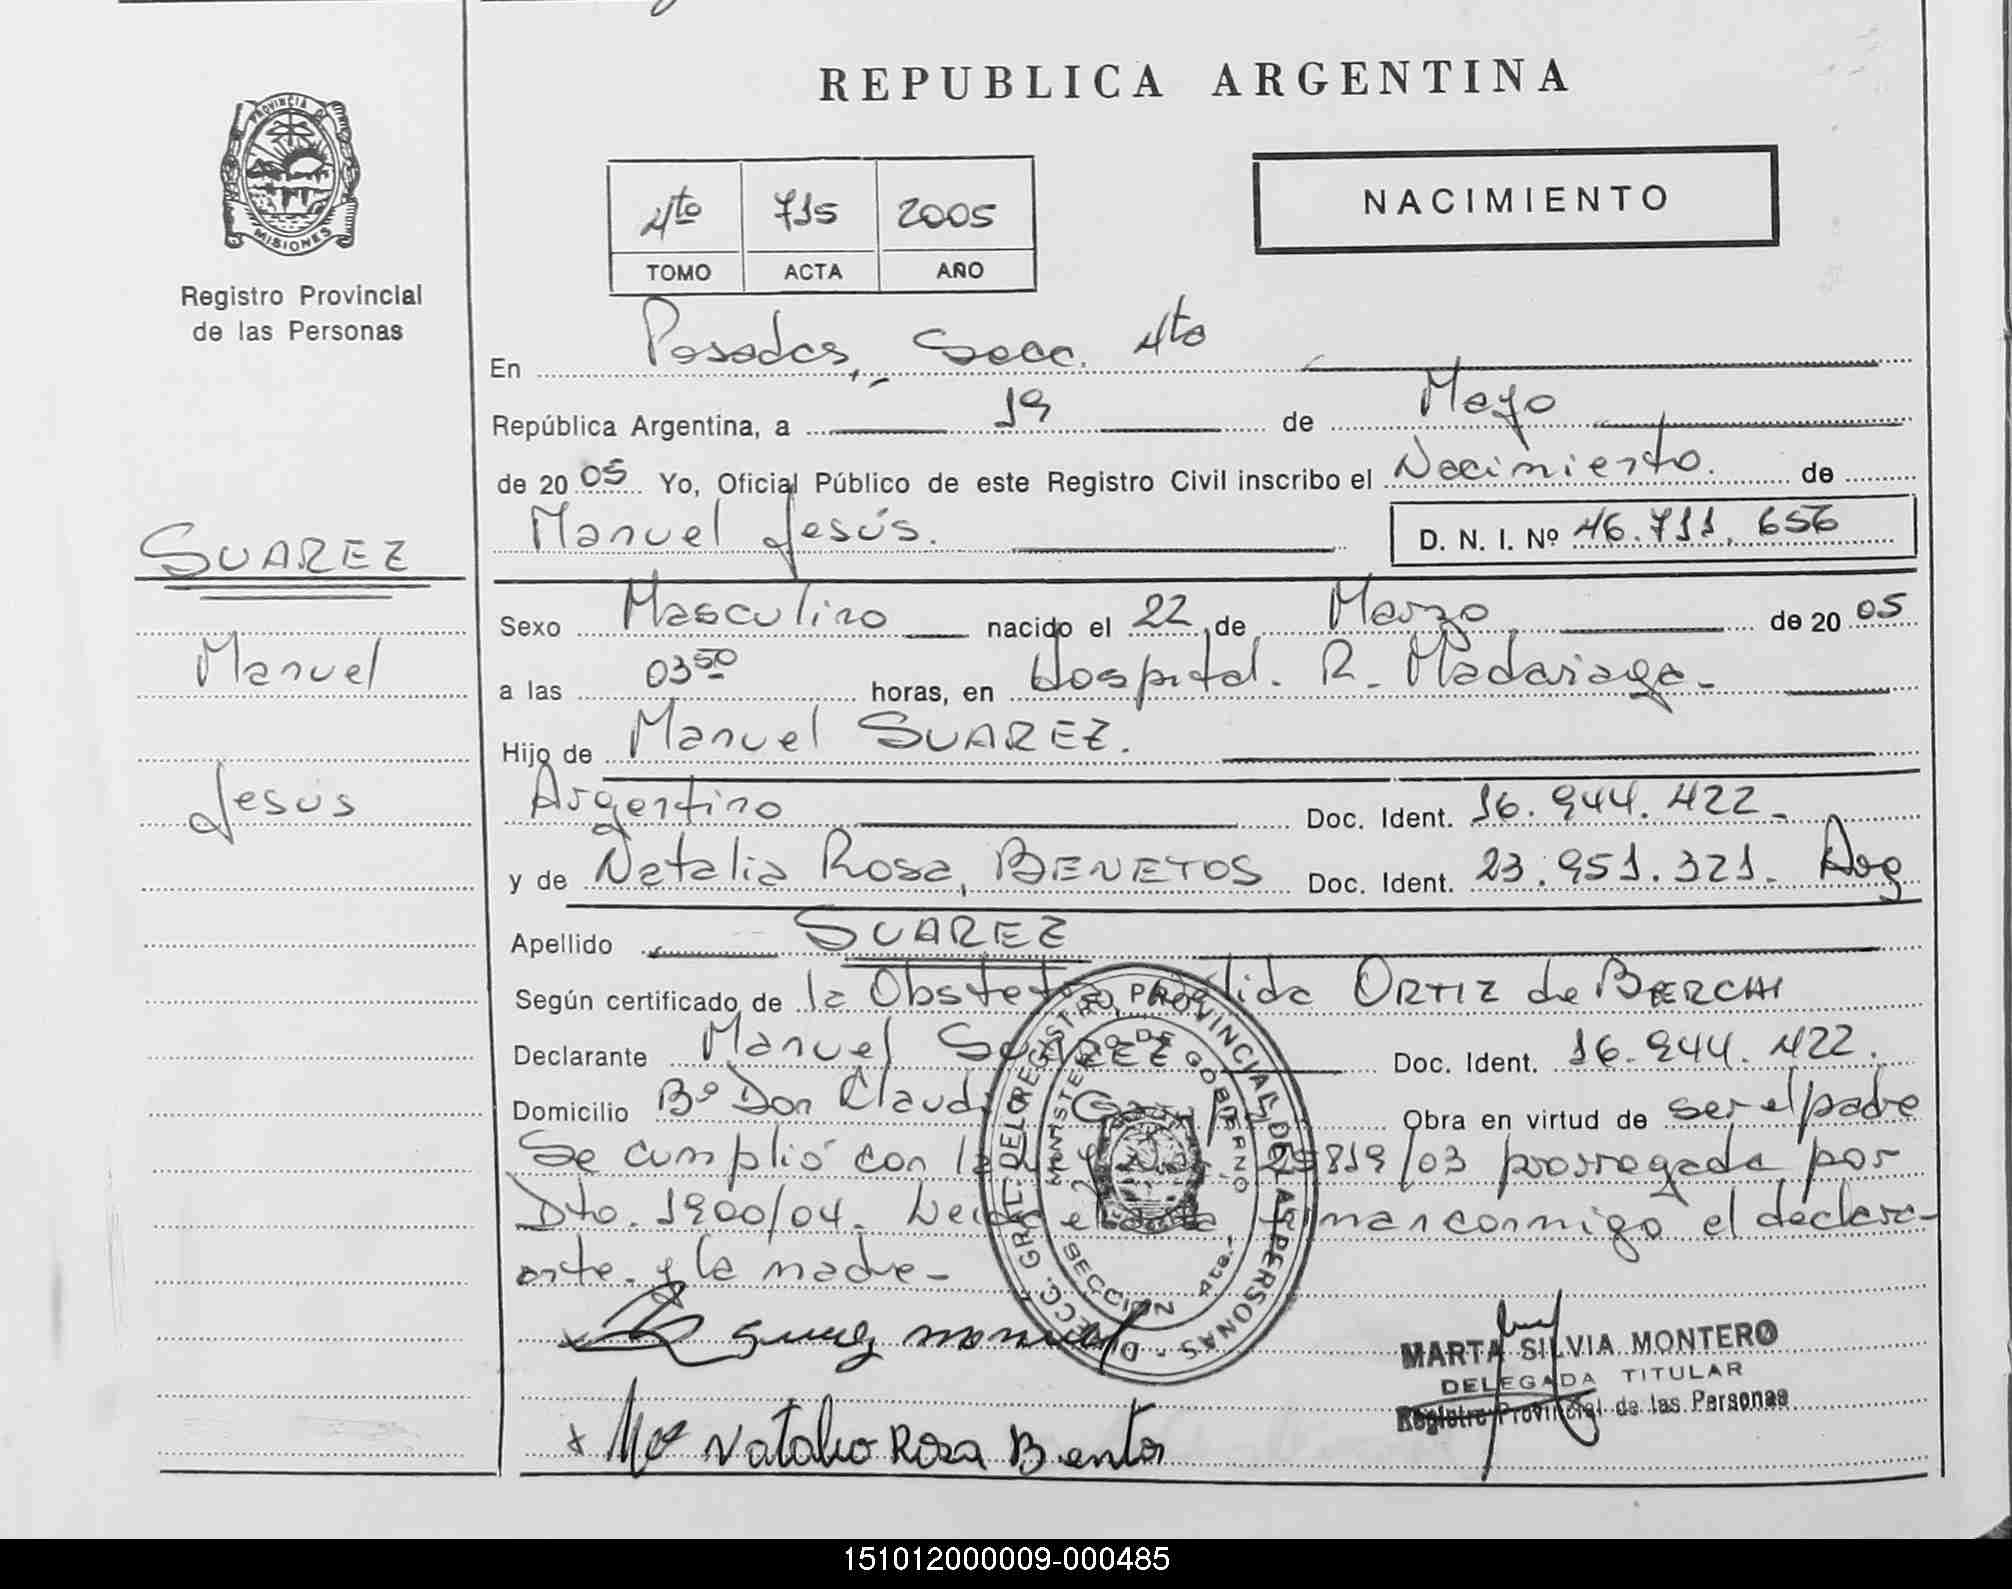 REPUBLICA ARGENTINA
PROVINCIA DE MISIONES
Registro Provincial
de las Personas
4to 715 2005
TOMO ACTA AÑO
NACIMIENTO
En Posadas, Secc. 4to
República Argentina, a 19 de Mayo
de 2005 Yo, Oficial Público de este Registro Civil inscribo el Nacimiento. de
Manuel Jesús. D. N. I. Nº 46.711.656
SUAREZ
Manuel
Jesús
Sexo Masculino nacido el 22 de Marzo de 2005
a las 03 50 horas, en Hospital. R. Madariaga-
Hijo de Manuel SUAREZ.
Argentino Doc. Ident. 16.944.422-
y de Natalia Rosa, BENETOS Doc. Ident. 23.951.321- Arg
Apellido SUAREZ
Según certificado de la ORTIZ de BERCHI
Declarante Manuel SUAREZ Doc. Ident. 16.944.422.
Domicilio Bº Don Obra en virtud de ser el padre
Se cumplió con 25819/03 prorrogada por
Dto. 1900/04. Leida el acta firman conmigo el declar-
ante. y la madre-
DECC. GRAL. DEL REGISTRO PROVINCIAL DE LAS PERSONAS
MINISTERIO DE GOBIERNO
SECCION 4ta.
Suarez manuel
Mª Natalia Rosa Bentos
MARTA SILVIA MONTERO
DELEGADA TITULAR
Registro Provincial de las Personas
151012000009-000485